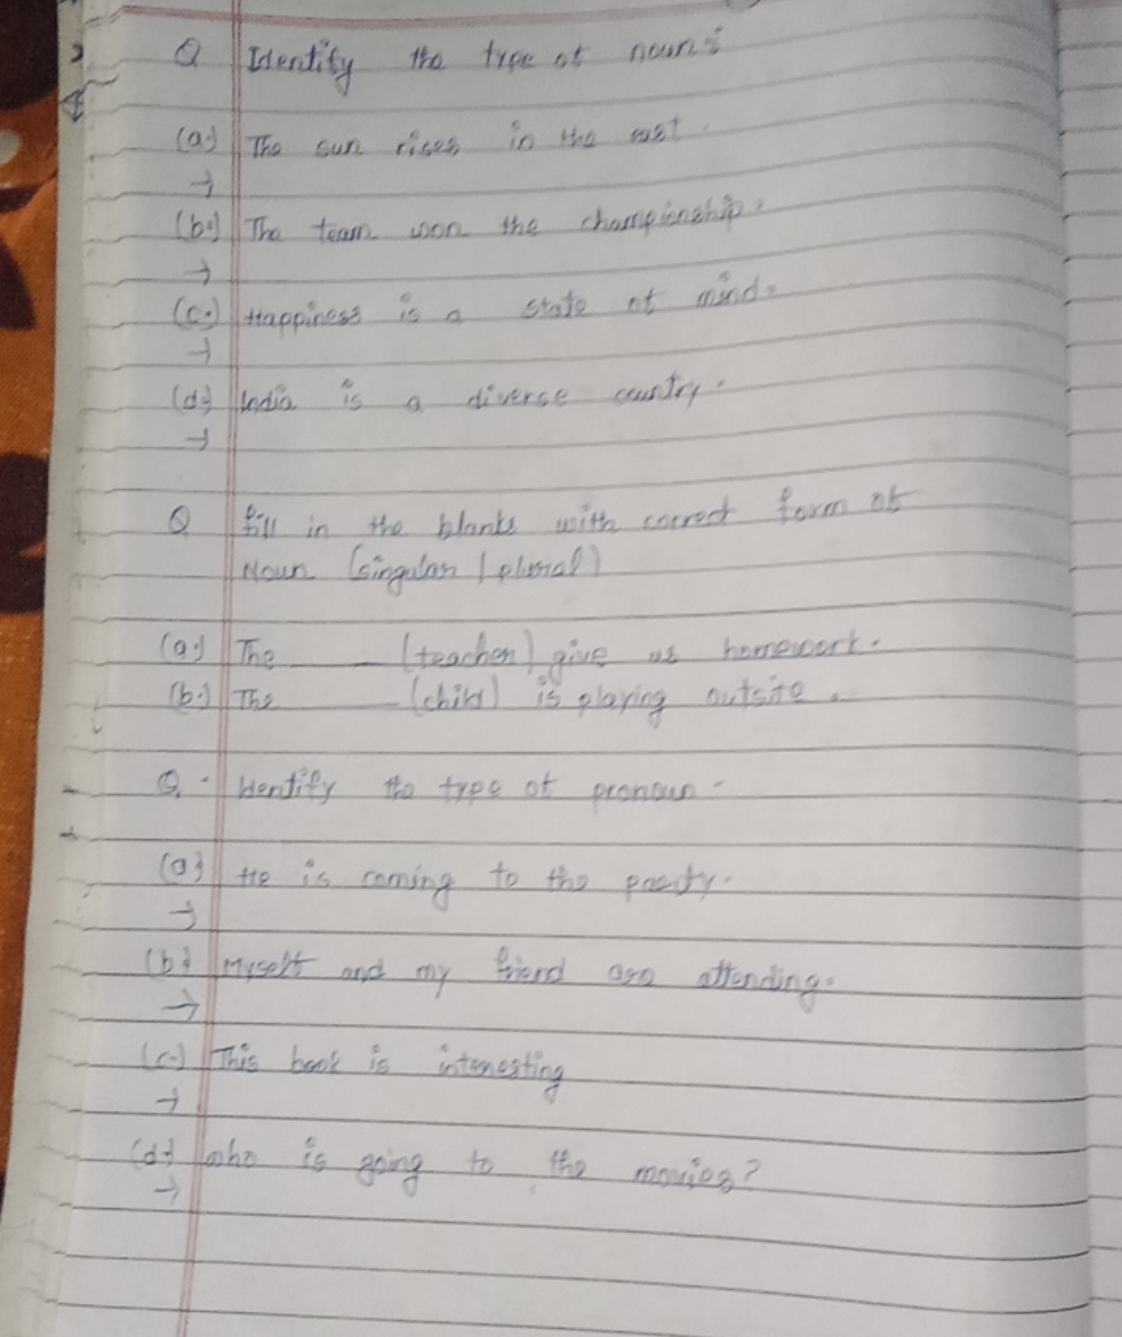 Q Identify the type of noun:
(a.) The sun rises in the east.
→
(b.) The team won the championship.
→
(c.) Happiness is a state of mind.
→
(d.) India is a diverse country.
→
Q fill in the blanks with correct form of
Noun (singular / plural)
(a.) The ____ (teacher) give us homework.
(b.) The ____ (child) is playing outsite.
Q. Identify the type of pronoun -
(a) He is coming to the party.
→
(b) Myself and my friend are attending.
→
(c.) This book is interesting
→
(d.) who is going to the movies?
→